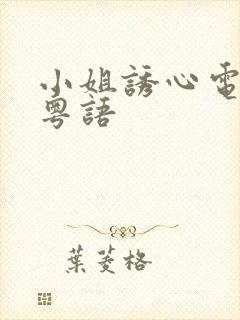 小姐誘心電
粵語
葉菱格